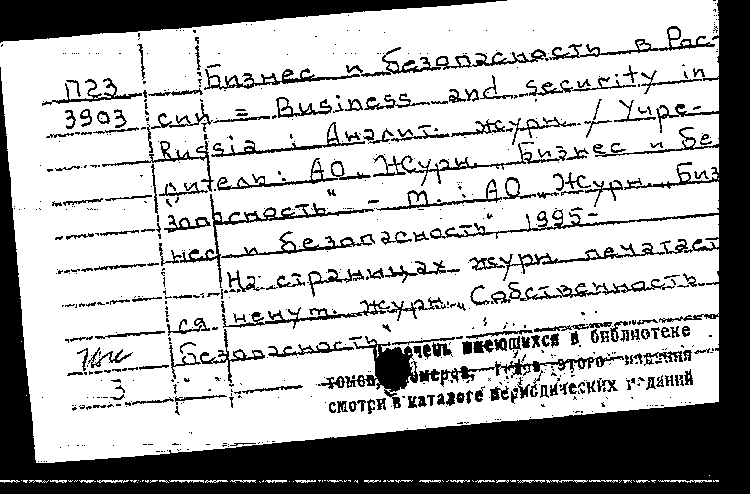 П23
3903
Бизнес и безопасность в Рос-
сии = Business and security in
Russia : Аналит. журн. / Учре-
дитель: АО „Журн. „Бизнес и бе
зопасность" - М. : АО „Журн. „Биз
нес и безопасность", 1995-
На страницах журн. печатает
ся ненум. журн. „Собственность
безопасность"
3
Перечень имеющихся в библиотеке
томов, номеров, года этого издания
смотри в каталоге периодических изданий